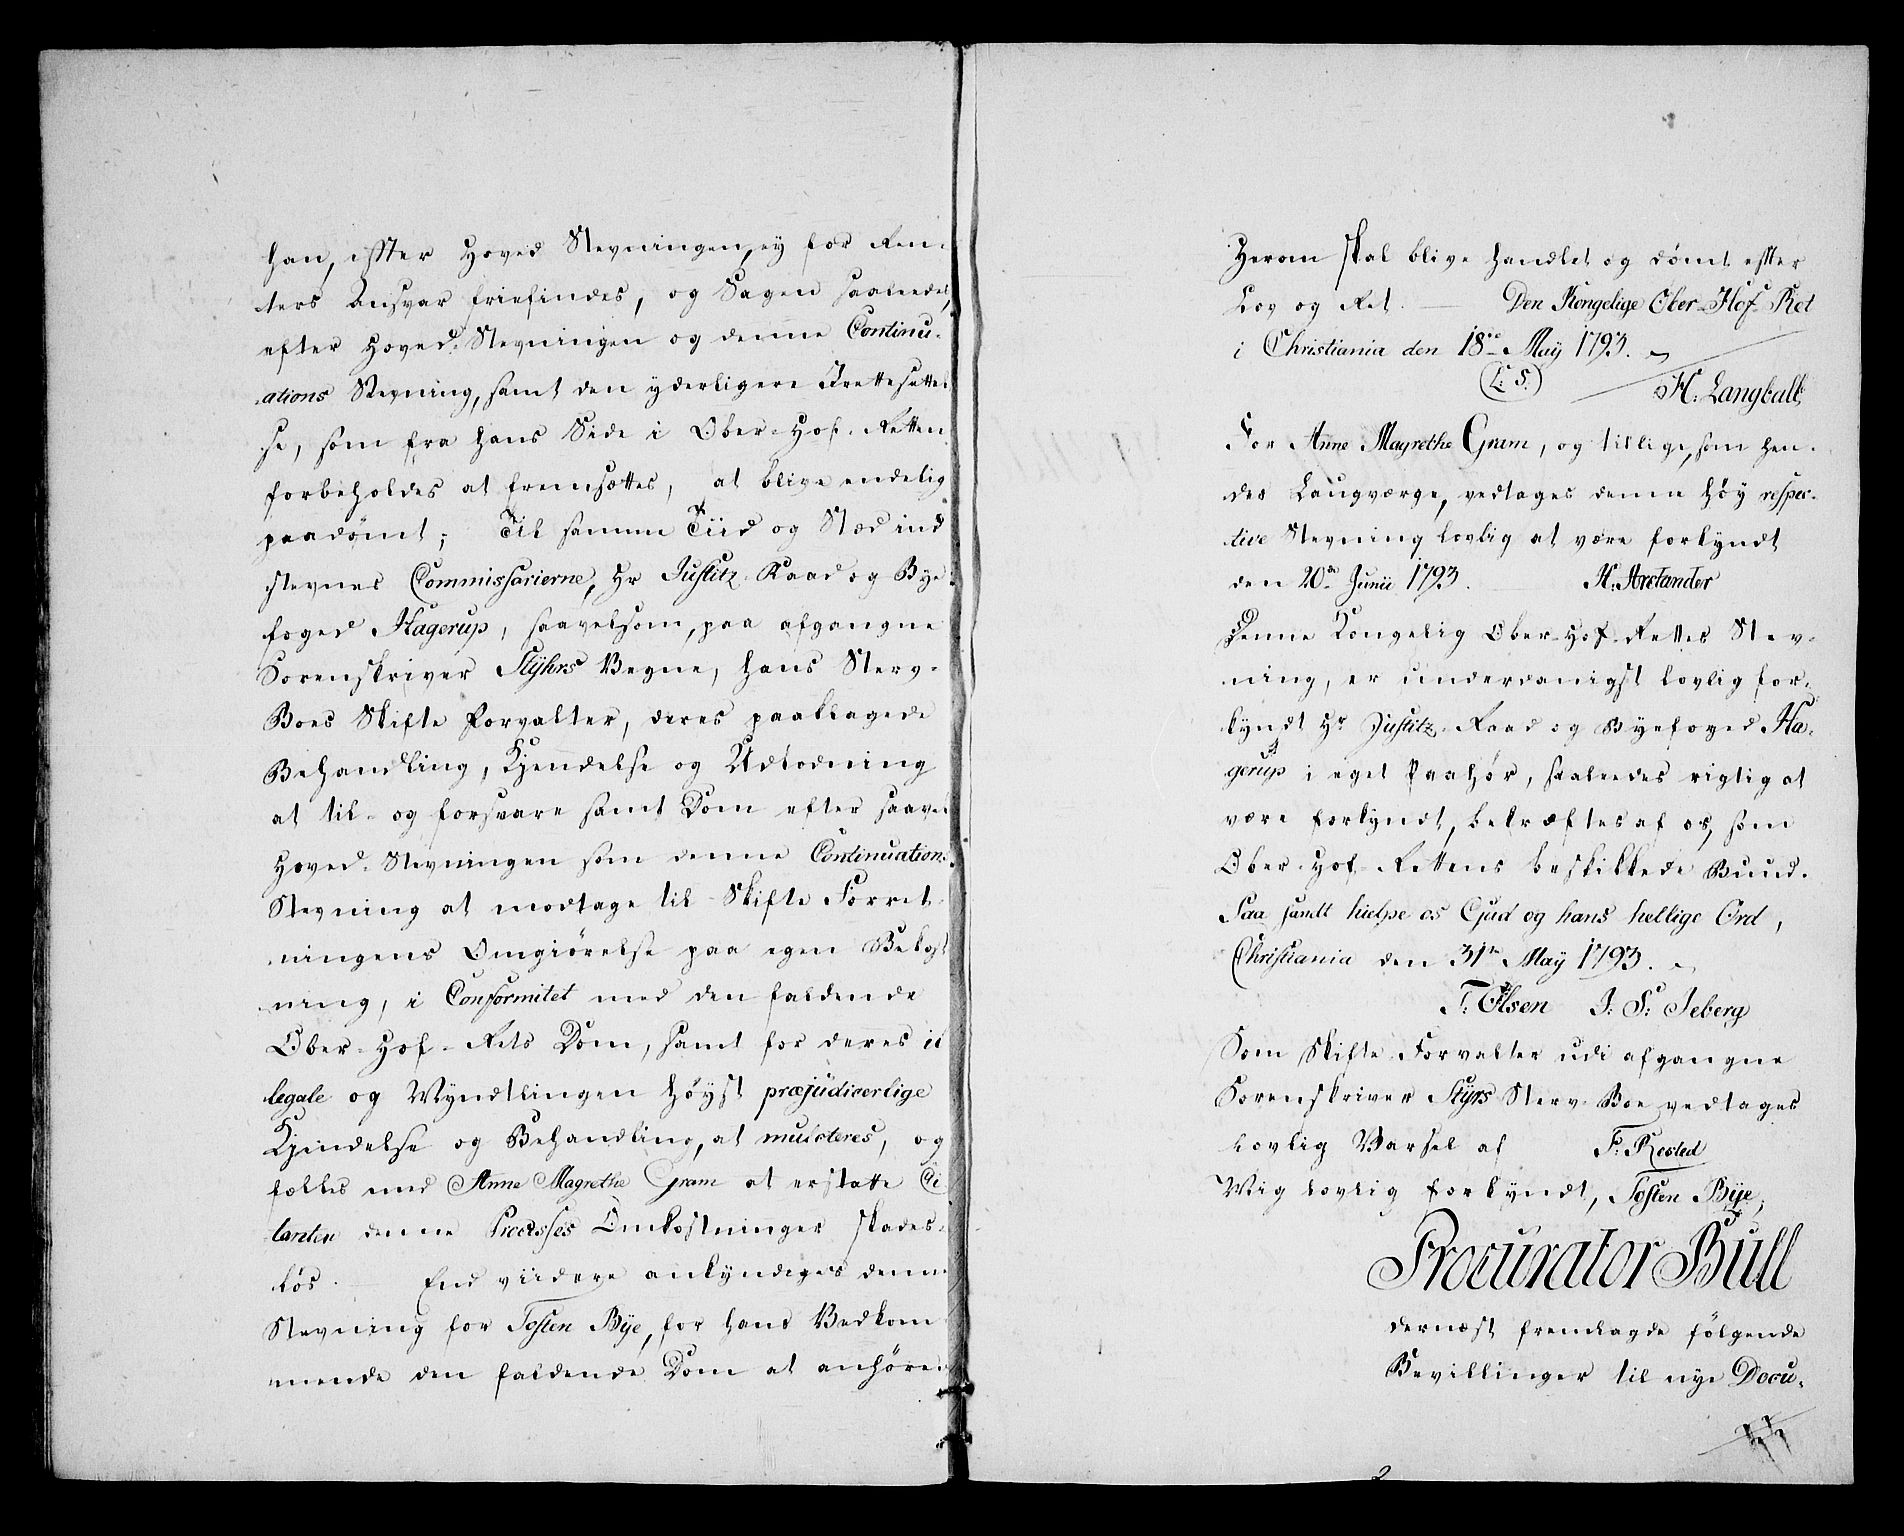 han, efter Hoved Stevningen, ey for Ren-
ters Ansvar friefindes, og Sagen saaleedes,
efter Hoved-Stevningen og denne Continu-
ations Stevning, samt den yderligere Irettesættel-
se, som fra hans Side i Ober-Hof-Retten
forbeholdes at fremsættes, at blive endelig
paadømt; Til samme Tiid og Stæd ind
stevnes Commissarierne, Hr Justitz-Raad og Bye
foged Hagerup, saavelsom, paa afgangne
Sorenskriver Stÿhrs Vegne, hans Sterv-
Boes Skifte Forvalter, deres paaklagede
Behandling, Kjendelse og Udlodning
at til- og forsvare samt Dom efter saavel
Hoved-Stevningen som denne Continuations
Stevning at modtage til Skifte Forret-
ningens Omgiørelse paa egen Bekost
ning, i Conformitet med den faldende
Ober-Hof-Rets Dom, samt for deres il
legale og Myndtlingen høyst præjudicerlige
Kjendelse og Behandling, at mulcteres, og
fældes med Anne Magrethe Gram at erstatte Ci
tanten denne Processes Omkostninger skades-
løs. End viidere ankyndiges denne
Stevning for Tosten Bÿe, for hans Vedkom
mende den faldende Dom at anhøre.
Herom skal blive handlet og dømt efter
Lov og Ret. Den Kongelige Ober-Hof-Ret
i Christiania den 18de Maÿ 1793.
(L: S.)
H. Langball
For Anne Magrethe Gram, og tillige, som hen-
des Laugværge, vedtages denne høy respec-
tive Stevning lovlig at være forkyndt
den 20de Junii 1793. H. Arctander
Denne Kongelig Ober-Hof-Rettes Stev-
ning, er underdanigst lovlig for-
kyndt Hr Justitz-Raad og Byefoged Ha-
gerup i eget Paahør, saaleedes rigtig at
være forkyndt, bekræftes af os, som
Ober-Hof-Rettens beskikkede Buud.
Saa sandt hielpe os Gud og hans hellige Ord,
Christiania den 31te Maÿ 1793.
T. Olsen J: S: Seberg
Som Skifte-Forvalter udi afgangne
Sorenskriver Stÿrs Sterv-Boe vedtages
lovlig Varsel af F. Rosted
Mig lovlig forkyndt, Tosten Bÿe,
Procurator Bull
dernæst fremlagde følgende
Bevillinger til nye Docu-